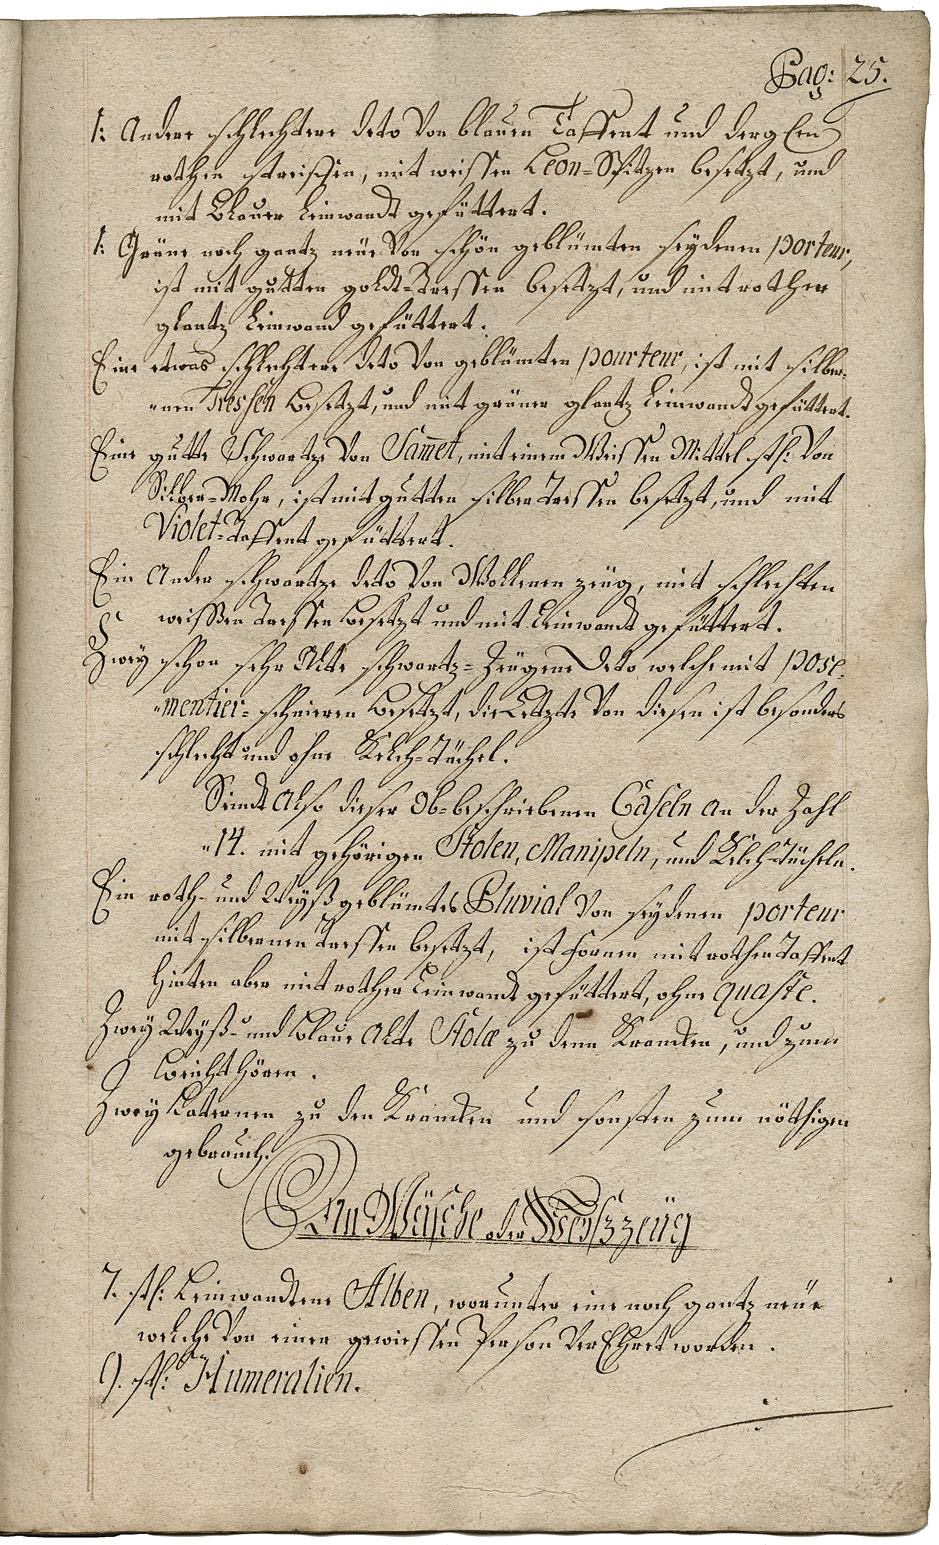 Pag: 25.
1: Andere schlechtere deto von blauen Taffent und derglen
rothen streiffen, mit weissen Leon=Spitzen besetzt, und
mit blauer Leinwandt gefüttert.
1: Grüne noch gantz neüe von schön geblümten seydenen porteur,
ist mit gutten goldt=tressen besetzt, und mit rother
glantz Leinwand gefüttert.
Eine etwas schlechtere deto von geblümten pourteur, ist mit silber=
=nen Tressen besetzt, und mit grüner glantz Leinwandt gefüttert.
Eine gutte Schwartze von Sam̅et, mit einem Weissen Mittel stk: von
Silber=Mohr, ist mit gutten silber tressen besetzt, und mit
Violet=taffent gefüttert.
Ein Ander schwartze deto von Wollenen zeüg, mit schlechten
weissen tressen besetzt und mit Leinwandt gefüttert.
Zwey schon sehr Alte schwartz=Zeügene deto welche mit pose=
=mentier=schnieren besetzt, die Letzte von diesen ist besonders
schlecht und ohne Kelch=tüchel.
Seindt Also dieser Ob=beschriebenen Caseln an der Zahl
=14. mit gehörigen Stolen, Manipeln, und Kelch=tücheln.
Ein roth= und Weyß geblümtes Pluvial von seydenen porteur
mit silbernen tressen besetzt, ist fornen mit rothen taffent
hinten aber mit rother Leinwandt gefüttert, ohne quaste.
Zwey Weyß= und blaue Alte Stolæ zu denen Krancken, und zum
beicht hören.
Zwey Laternen zu den Krancken und sonsten zum nöthigen
gebrauch.
An Wäsche oder Weisszeüg
7. stk: Leinwandtene Alben, worunter eine noch gantz neüe
welche von einer gewiessen Person verEhret worden.
9. stk: Humeralien.